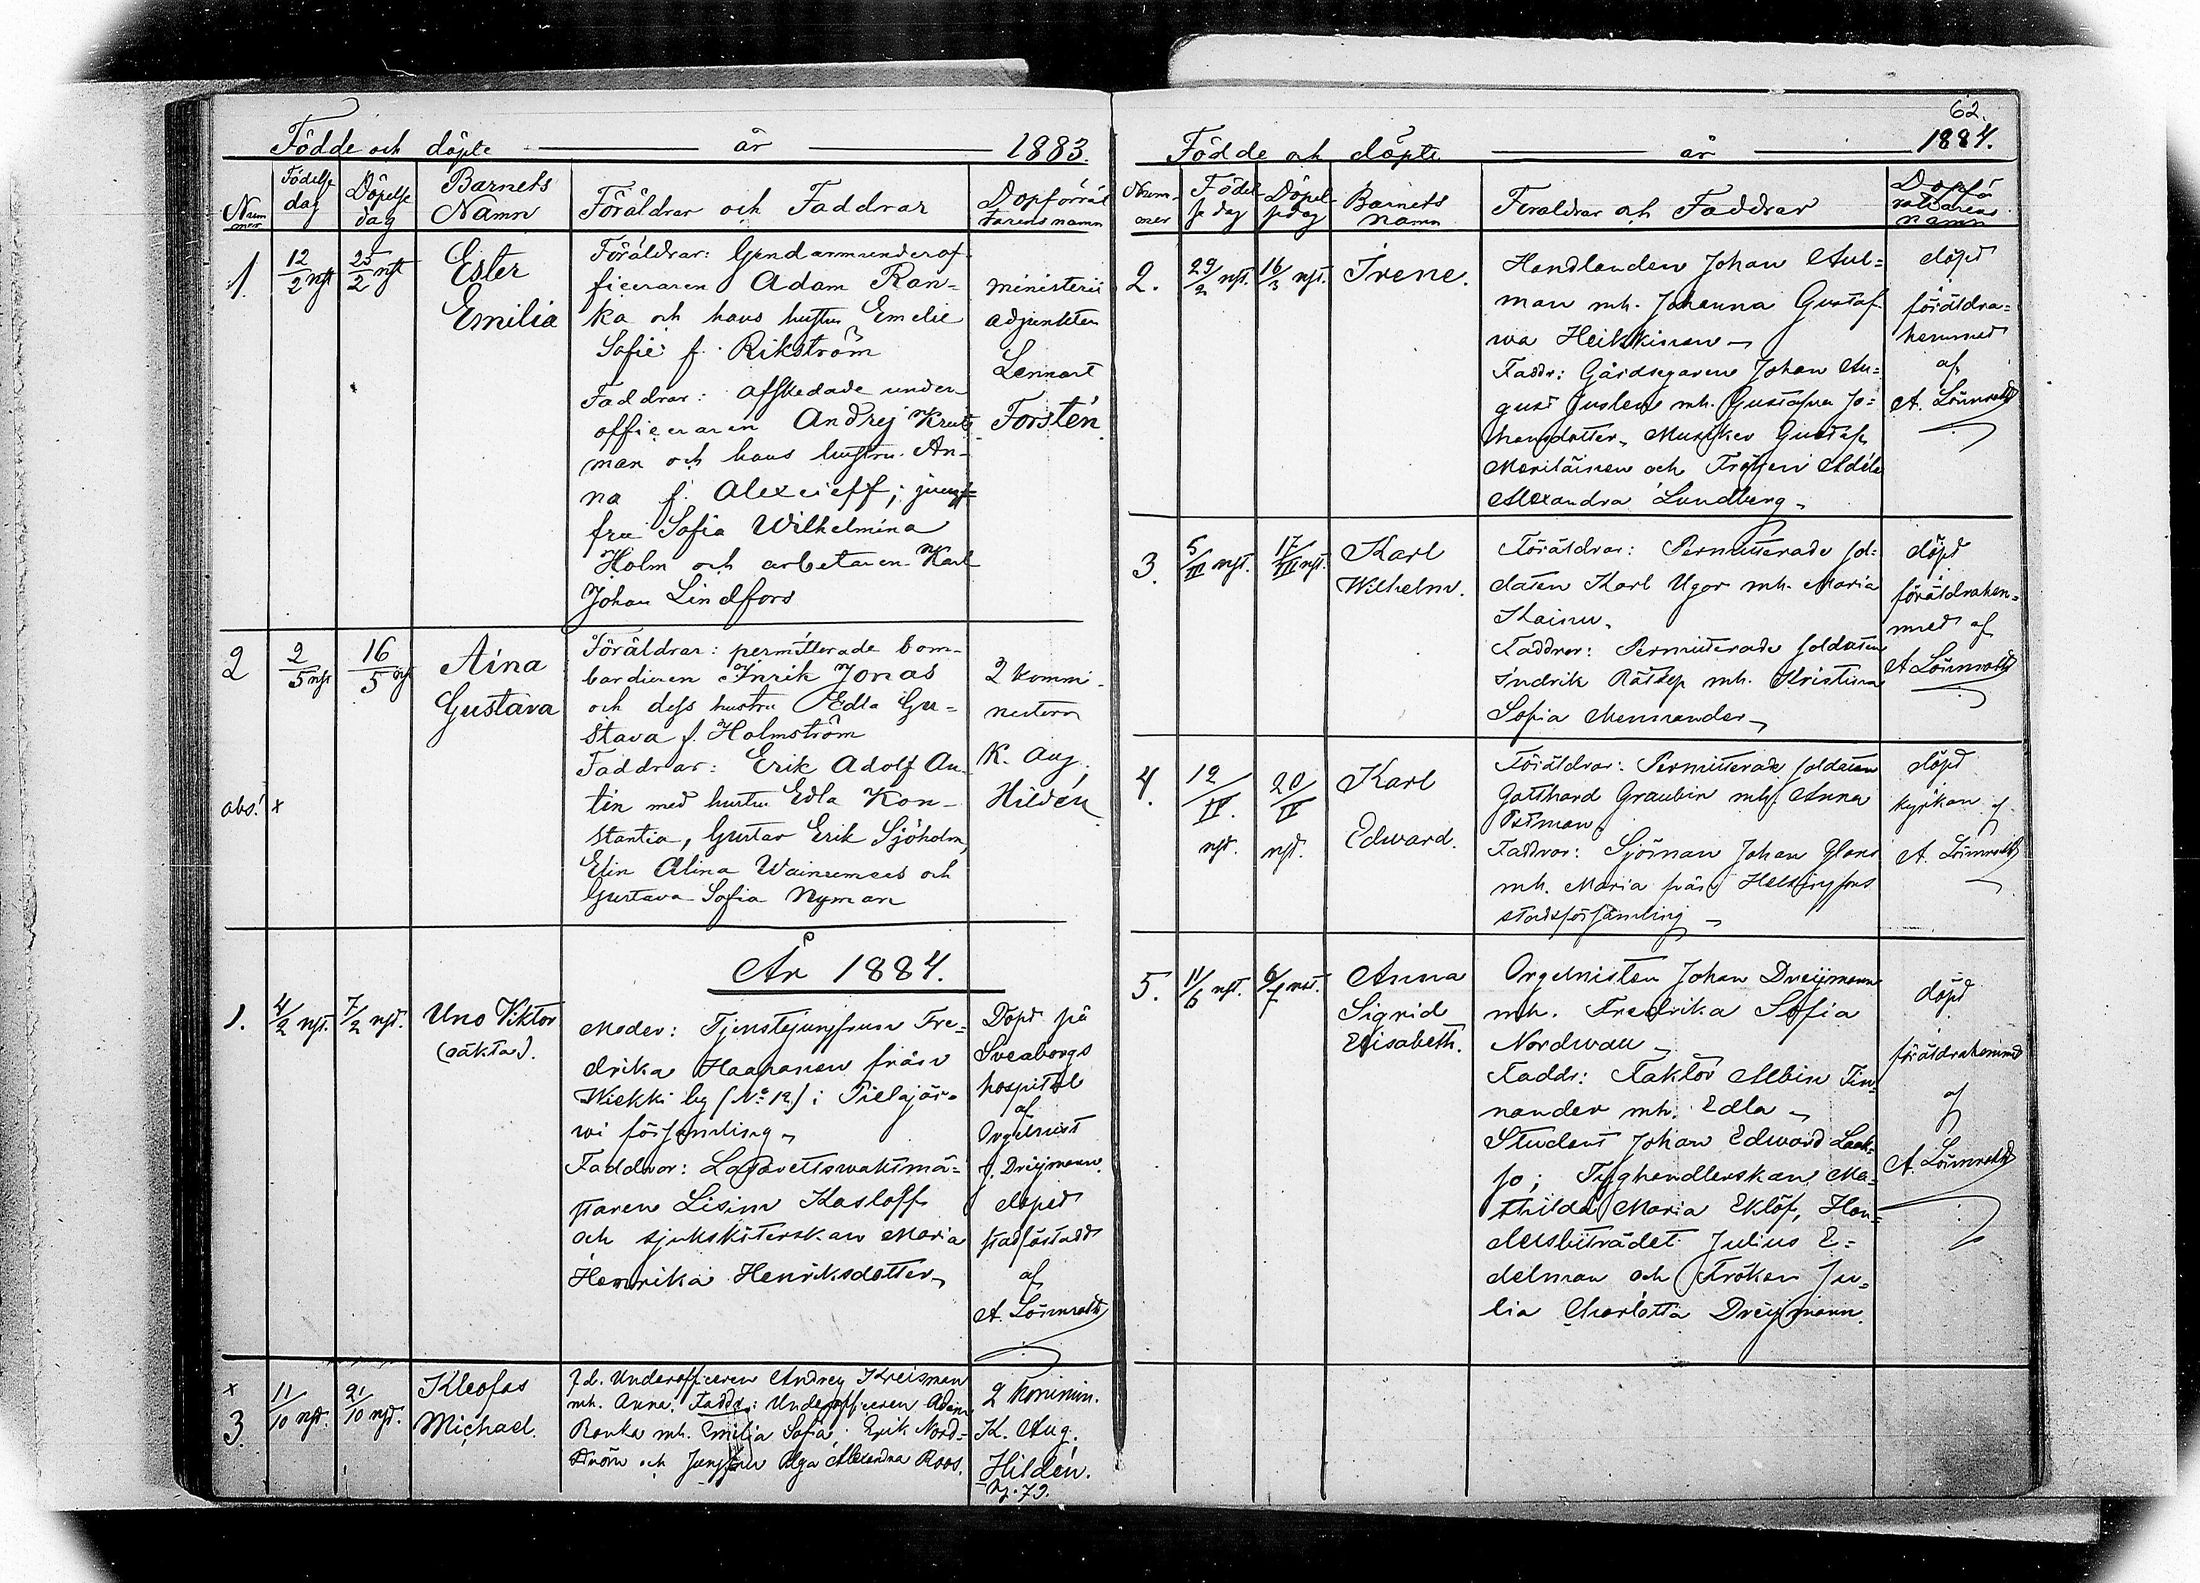 Födde och döpte år 1883.
Nummer
Födelse dag
Döpelse dag
Barnets Namn
Föräldrar och Faddrar
Dopförrättarens namn
1
12/2 nst
25/2 nst
Ester
Emilia
Föräldrar: Gendarmunderof
ficeraren Adam Ran-
ka och hans hustru Emelie
Sofie f. Rikström
Faddrar: afskedade under-
officeraren Andrej Kreits
man och hans hustru An-
na f. Alexcieff; jung-
fru Sofia Wilhelmina
Holm och arbetaren Karl
Johan Lindfors
ministerii
adjunkten
Lennart
Forstén
2
2/5 nst
16/5 nst
Aina
Gustava
obs! x
Föräldrar: permitterade bom-
bardieren Inrik Jonas
och dess hustru Edla Gu-
stava f. Holmström
Faddrar: Erik Adolf An-
tin med hustru Edla Kon-
stantia, Gustav Erik Sjöholm,
Elin Alina och
Gustava Sofia Nyman
2 kommi-
nistern
K. Aug.
Hildén
År 1884.
1.
4/2 nst.
7/2 nst.
Uno Viktor
(oäkta).
Moder: Tjenstejungfrun Fre-
drika Haapanen från
Wiekki by (No 12) i Pielajär-
wi församling
Faddrar: Lazarettswaktmä-
staren Lisim Kasloff
och sjukskötterskan Maria
Henrika Henriksdotter
Döpt på
Sveaborgs
hospital
af
Orgelnist
J. Dreijmann.
dopet
stadfästadt
af
A. Lönnroth
x
3.
11/10 nst.
21/10 nst.
Kleofas
Michael.
F.d. Underofficeren Andrey Kreisman
mh. Anna. Faddr: Underofficeren Adam
Ranka mh. Emilia Sofia; Erik Nord-
ström och Jungfru Olga Alexandra Roos.
2 Kommin.
K. Aug.
Hildén.
N. 79.
62.
Födde och döpte år 1884.
Nummer
Födelsedag
Döpelsedag
Barnets namn
Föräldrar och Faddrar
Dopförrättarens namn
2.
29/2 nst.
16/3 nst.
Irene.
Handlanden Johan Aul-
man mh. Johanna Gustaf-
wa Heikkinen
Faddr: Gårdsegaren Johan Au-
gust Juslen mh. Gustafva Jo-
hansdotter, Musiker Gustaf
Meriläinen och Fröken Adèle
Alexandra Lundberg
döpt
föräldra-
hemmet
af
A. Lönnroth
3.
5/III nst.
17/III nst.
Karl
Wilhelm.
Föräldrar: Permitterade sol-
daten Karl Ugor mh. Maria
Kainu.
Faddrar: Permitterade soldaten
Indrik Rätsep mh. Kristina
Sofia Mennander
döpt
föräldrahem-
met af
A. Lönnroth
4.
12/IV. nst.
20/IV nst.
Karl
Edward.
Föräldrar: Permitterade soldaten
Gotthard Graubin mh. Anna
Pätman.
Faddrar: Sjöman Johan Glans
mh. Maria från Helsingfors
stadsförsamling
döpt
kyrkan af
A. Lönnroth
5.
11/6 nst.
6/7 nst.
Anna
Sigrid
Elisabeth.
Orgelnisten Johan Dreijmann
mh. Fredrika Sofia
Nordwau
Faddr: Faktor Albin Fin-
nander mh. Edla
Student Johan Edward Laak-
so; Tyghandlerskan Ma-
thilda Maria Eklöf, Han-
delsbiträdet Julius E-
delman och Fröken Ju-
lia Charlotta Dreijmann.
döpt
föräldrahemmet
af
A. Lönnroth